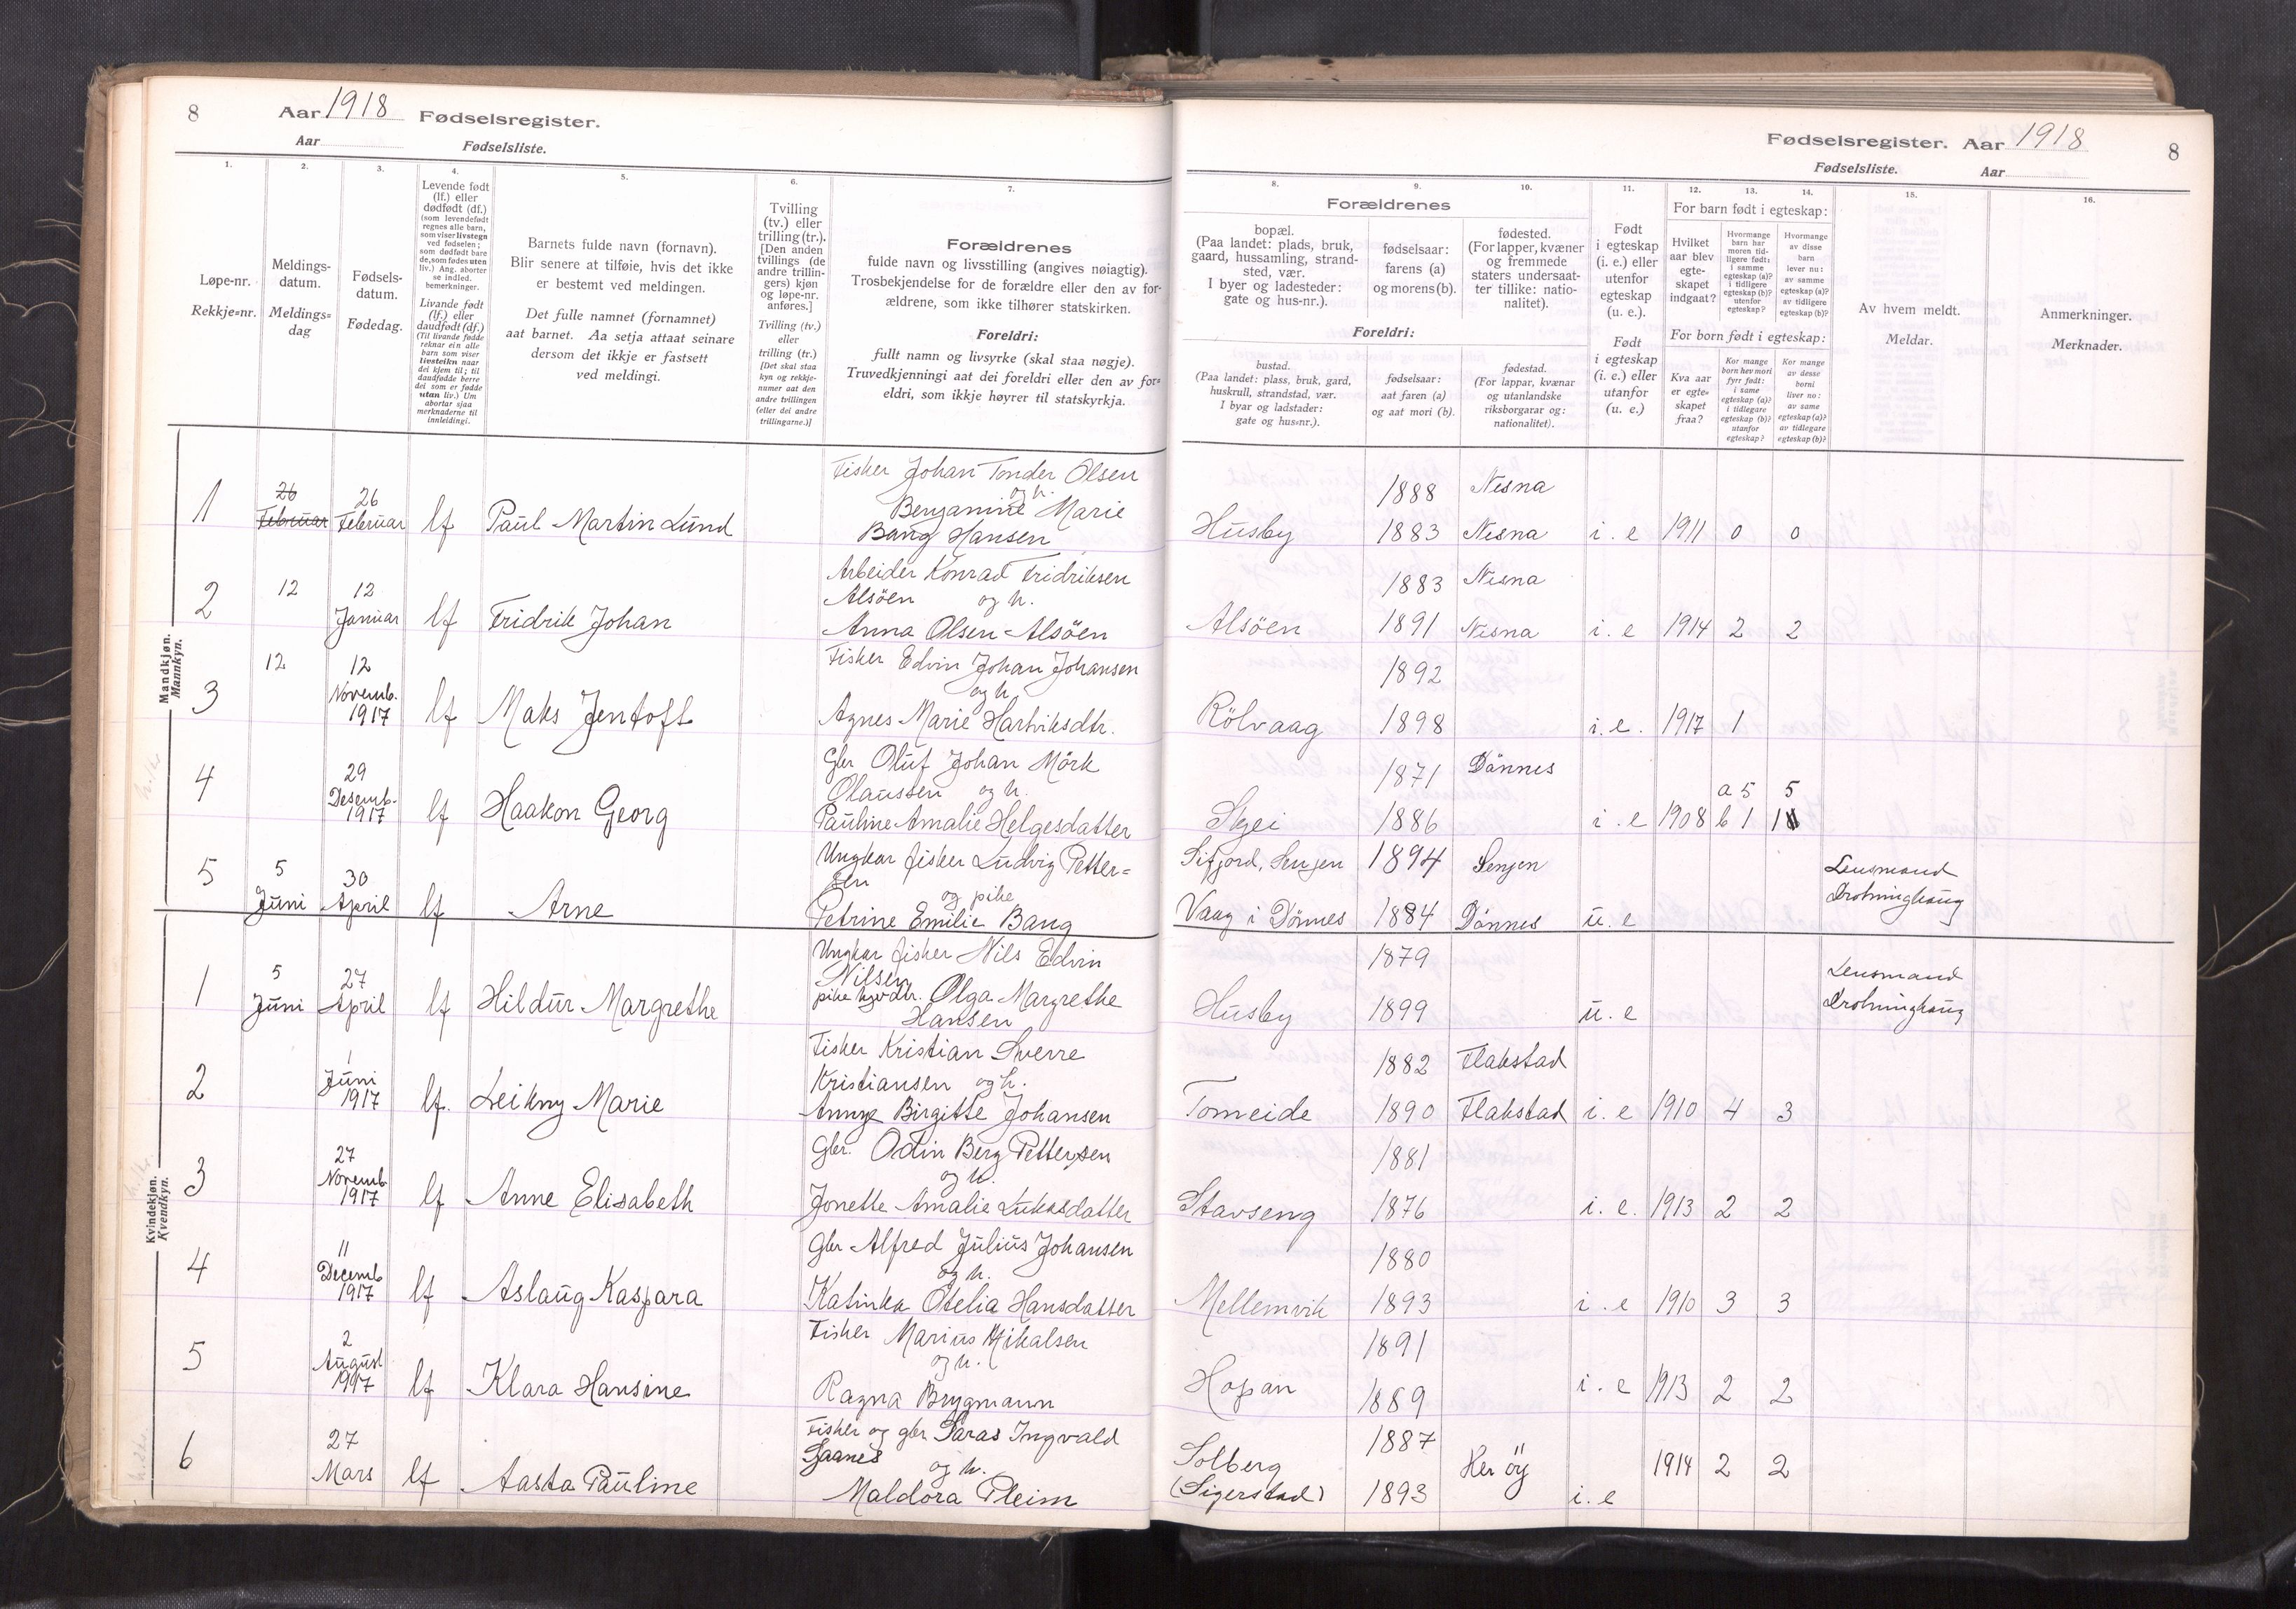 8
Aar 1918 Fødselsregister.
Aar Fødselsliste.
Fødselsregister. Aar 1918
Fødselsliste. Aar
8
1.
Løpe-nr.
Rekkje-nr.
2.
Meldings-
datum.
Meldings-
dag
3.
Fødsels-
datum.
Fødedag.
4.
Levende født
(lf.) eller
dødfødt (df.)
(som levendefødt
regnes alle barn,
som viser livstegn
ved fødselen;
som dødfødt bare
de, som fødes uten
liv.) Ang. aborter
se indled.
bemerkninger.
Livande født
(lf.) eller
daudfødt (df.)
(Til livande fødde
reknar ein alle
barn som viser
livsteikn naar
dei kjem til; til
daudfødde berre
dei som er fødde
utan liv.) Um
abortar sjaa
merknaderne til
innleidingi.
5.
Barnets fulde navn (fornavn).
Blir senere at tilføie, hvis det ikke
er bestemt ved meldingen.
Det fulle namnet (fornamnet)
aat barnet. Aa setja attaat seinare
dersom det ikkje er fastsett
ved meldingi.
6.
Tvilling
(tv.) eller
trilling (tr.).
[Den anden
tvillings (de
andre trillin-
gers) kjøn
og løpe-nr.
anføres.]
Tvilling (tv.)
eller
trilling (tr.)
[Det skal staa
kyn og rekkje-
numer aat den
andre tvillingen
(eller dei andre
trillingarne.)]
7.
Forældrenes
fulde navn og livsstilling (angives nøiagtig).
Trosbekjendelse for de forældre eller den av for-
ældrene, som ikke tilhører statskirken.
Foreldri:
fullt namn og livsyrke (skal staa nøgje).
Truvedkjenningi aat dei foreldri eller den av for-
eldri, som ikkje høyrer til statskyrkja.
8. 9. 10.
Forældrenes
bopæl.
(Paa landet: plads, bruk,
gaard, hussamling, strand-
sted, vær.
I byer og ladesteder:
gate og hus-nr.).
fødselsaar:
farens (a)
og morens (b).
fødested.
(For lapper, kvæner
og fremmede
staters undersaat-
ter tillike: natio-
nalitet).
Foreldri:
bustad.
(Paa landet: plass, bruk, gard,
huskrull, strandstad, vær.
I byar og ladstader:
gate og hus-nr.).
fødselsaar:
aat faren (a)
og aat mori (b).
fødestad.
(For lappar, kvænar
og utanlandske
riksborgarar og:
nationalitet).
11.
Født
i egteskap
(i. e.) eller
utenfor
egteskap
(u. e.).
Født
i egteskap
(i. e.) eller
utanfor
egteskap
(u. e.)
12. 13. 14.
For barn født i egteskap:
Hvilket
aar blev
egte-
skapet
indgaat?
Hvormange
barn har
moren tid-
ligere født:
i samme
egteskap (a)?
i tidligere
egteskap (b)?
utenfor
egteskap?
Hvormange
av disse
barn
lever nu:
av samme
egteskap (a)?
av tidligere
egteskap (b)?
For born født i egteskap:
Kva aar
er egte-
skapet
fraa?
Kor mange
born hev mori
fyrr født:
i same
egteskap (a)?
i tidlegare
egteskap (b)?
utanfor
egteskap?
Kor mange
av desse
borni
liver no:
av same
egteskap (a)?
av tidlegare
egteskap (b)?
15.
Av hvem meldt.
Meldar.
16.
Anmerkninger.
Merknader.
Mandkjøn.
Mannkyn.
1
26
Februar
26
Februar
lf
Paul Martin Lund
Fisker Johan Tonder Olsen
og h.
Benjamine Marie
Bang Hansen
Husby
1888 Nesna
1883 Nesna i. e 1911 0 0
2
12
12
Januar
lf
Fridrik Johan
Arbeider Konrad Fridriksen
Alsöen og h.
Anna Olsen-Alsöen
Alsöen
1883 Nesna
1891 Nesna i. e 1914 2 2
3
12
12
Novemb.
1917
lf
Maks Jentoft
Fisker Edvin Johan Johansen
og h
Agnes Marie Hartviksdtr.
Rölvaag
1892
1898 i. e. 1917 1
4
29
Desemb.
1917
lf
Haakon Georg
Gbr Oluf Johan Mörk
Olaussen og h.
Pauline Amalie Helgesdatter
Skjei
1871 Dönnes
a 5 5
1886 i. e 1908 b 1 1
5
5
Juni
30
April
lf
Arne
Ungkar fisker Ludvig Petter-
sen
og pike
Petrine Emilie Bang
Sifjord, Senjen 1894 Senjen
Vaag i Dönnes 1884 Dönnes u. e
Lensmand
Drotninghaug
Kvindekjøn.
Kvendkyn.
1
5
Juni
27
April
lf
Hildur Margrethe
Ungkar fisker Nils Edvin
Nilsen
pike hjv dtr. Olga Margrethe
Hansen
Husby
1879
1899 u. e
Lensmand
Drotninghaug
2
1
Juni
1917
lf.
Leikny Marie
Fisker Kristian Sverre
Kristiansen og h.
Annye Birgitte Johansen
Tomeide
1882 Flakstad
1890 Flakstad i. e 1910 4 3
3
27
Novemb
1917
lf
Anne Elisabeth
Gbr. Odin Berg Pettersen
og h.
Jonette Amalie Lukasdatter
Stavseng
1881
1876 i. e. 1913 2 2
4
11
Decemb
1917
lf
Aslaug Kaspara
Gbr Alfred Julius Johansen
og h.
Katinka Otelia Hansdatter
Mellemvik
1880
1893 i. e 1910 3 3
5
2
August
1917
lf
Klara Hansine
Fisker Marius Mikalsen
og h.
Ragna Brygmann
Hopan
1891
1889 i. e 1913 2 2
6
27
Mars
lf
Aasta Pauline
Fisker og gbr Saras Ingvald
Saanes
og h.
Maldora Pleim
Solberg
(Sigerstad)
1887
Heröy
1893 i. e 1914 2 2